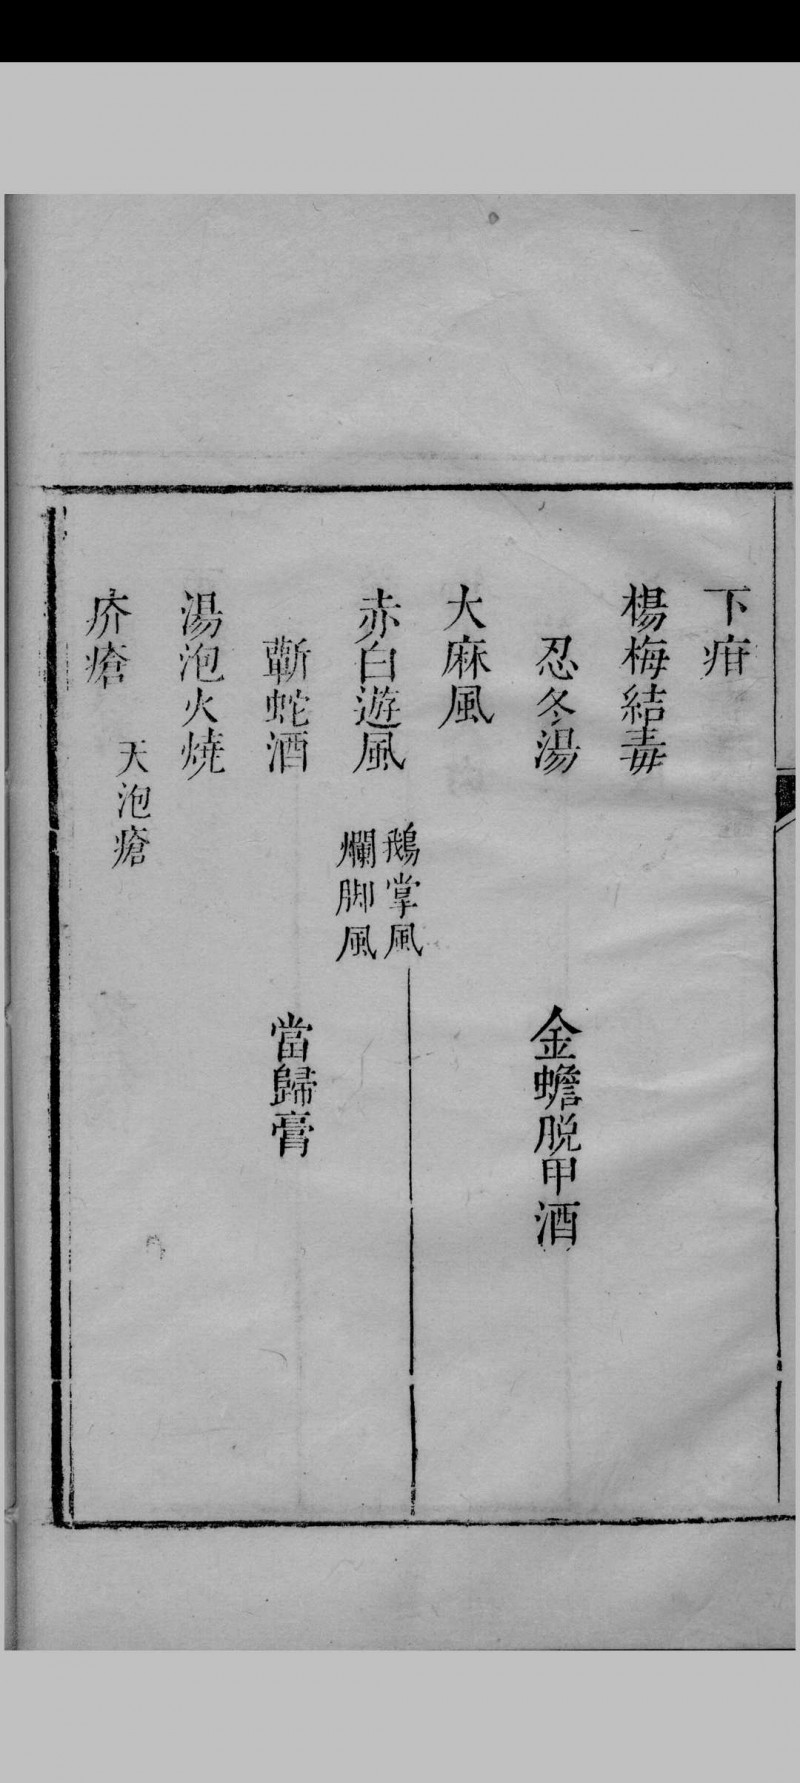 下疳
楊梅結毒
忍冬湯　金蟾脱甲酒
大麻風
赤白遊風　鵝掌風　爛脚風
蘄蛇酒　當歸膏
湯泡火燒
疥瘡　天泡瘡